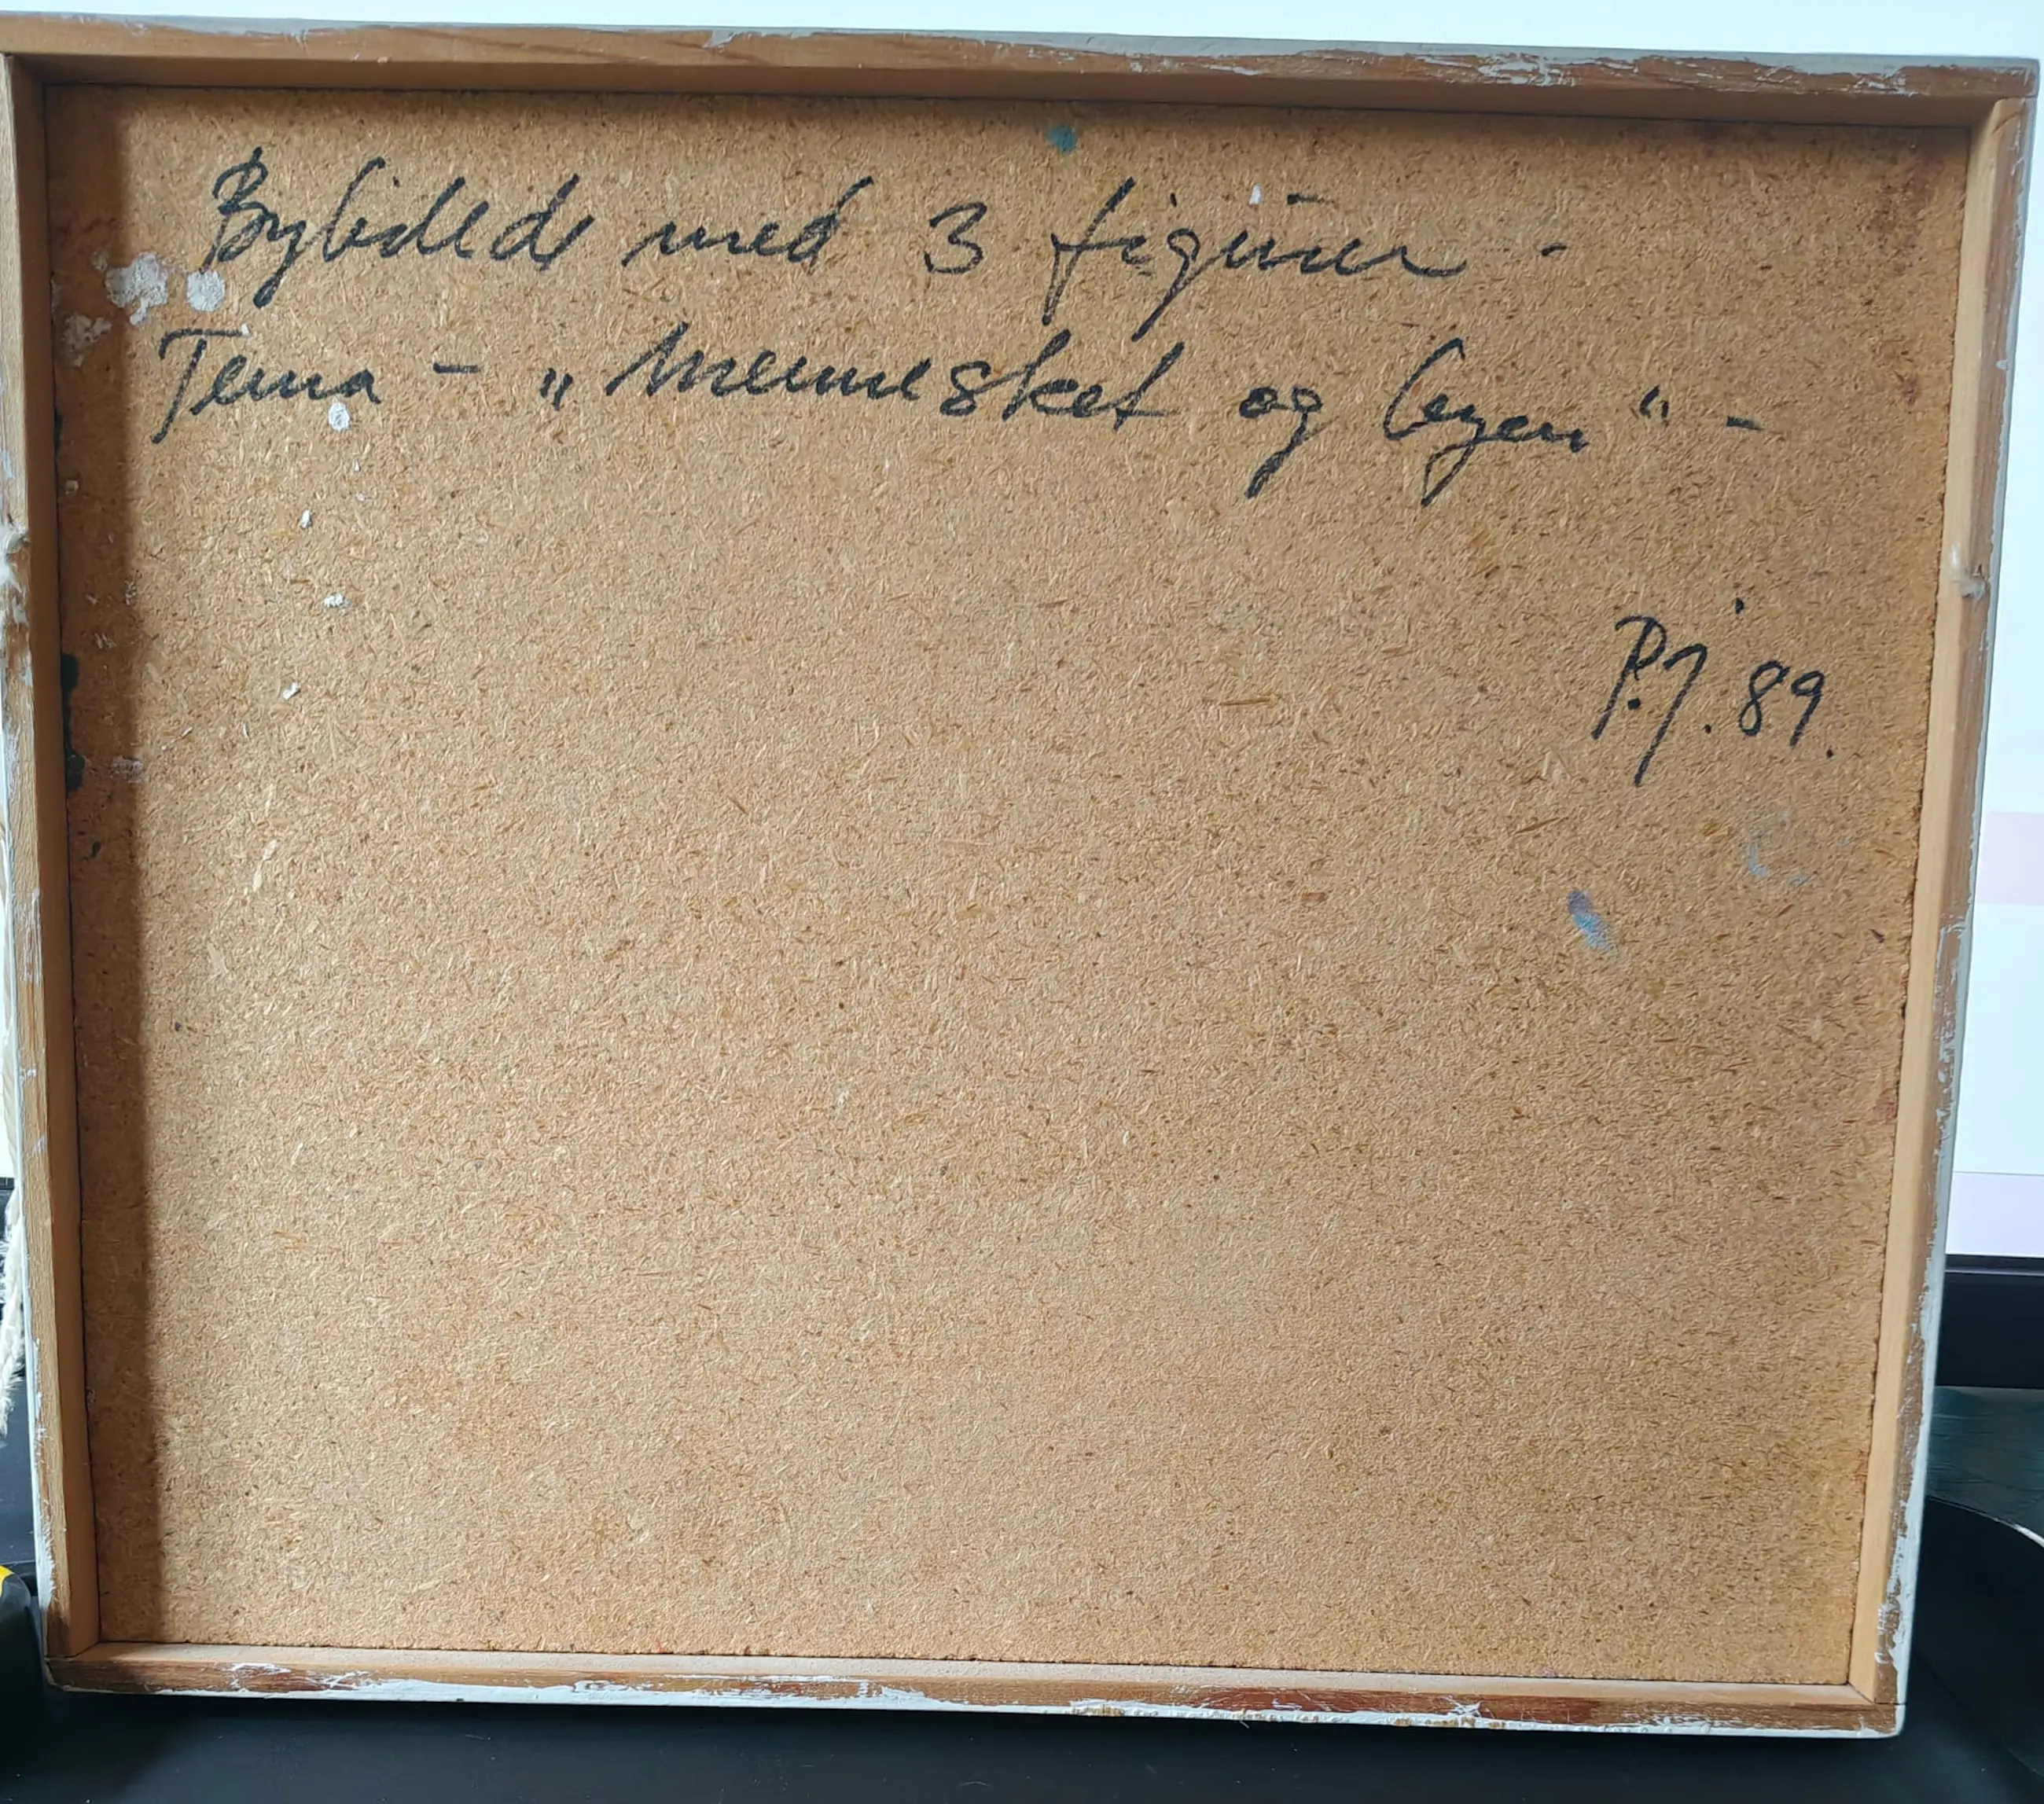 Bybillede med 3 figurer -
Tema - „Mennesket og byen“ -
P.J. 89.